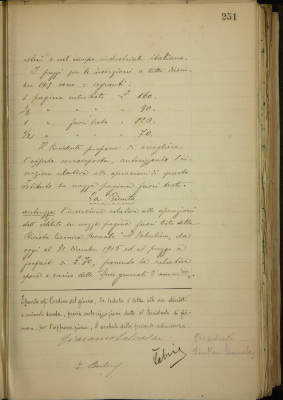 251
esteri e nel campo industriale italiano.
I prezzi per le inserzioni a tutto dicem-
bre 1915 sono i seguenti:
1 pagina entro testo £ 160.
1/2 " " " " 90.
1 " fuori testo " 120.
1/2 " " " " 70.
Il Presidente propone di accogliere
l'offerta sovraesposta, autorizzando l'in-
serzione relativa alle operazioni di questo
Istituto in mezza pagina fuori testo.
La Giunta
autorizza l'inserzione relativa alle operazioni
dell'Istituto in mezza pagina fuori testo della
Rivista Tecnica
oggi al 31 dicembre 1915 ed al prezzo a
forfait di £ 70, ponendo la relativa
spesa a carico delle spese generali
Esaurito così l'ordine del giorno, la seduta è tolta alle ore diciotto
e minuti trenta, previa autorizzazione data al Presidente di fir-
mare, per l'approvazione, il verbale della presente adunanza.
Presidente